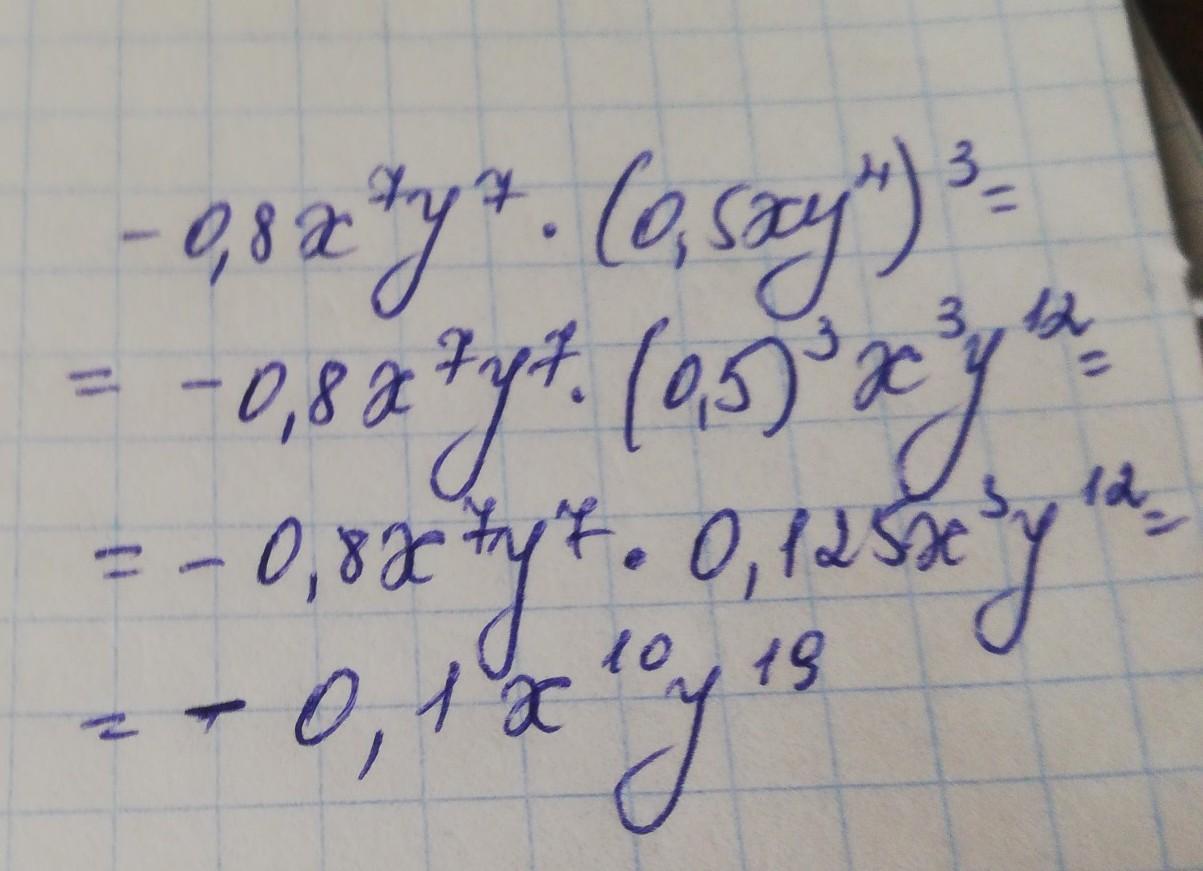 -0,8x⁷y⁷·(0,5xy⁴)³=
= -0,8x⁷y⁷·(0,5)³x³y¹²=
= -0,8x⁷y⁷·0,125x³y¹²=
= -0,1x¹⁰y¹⁹